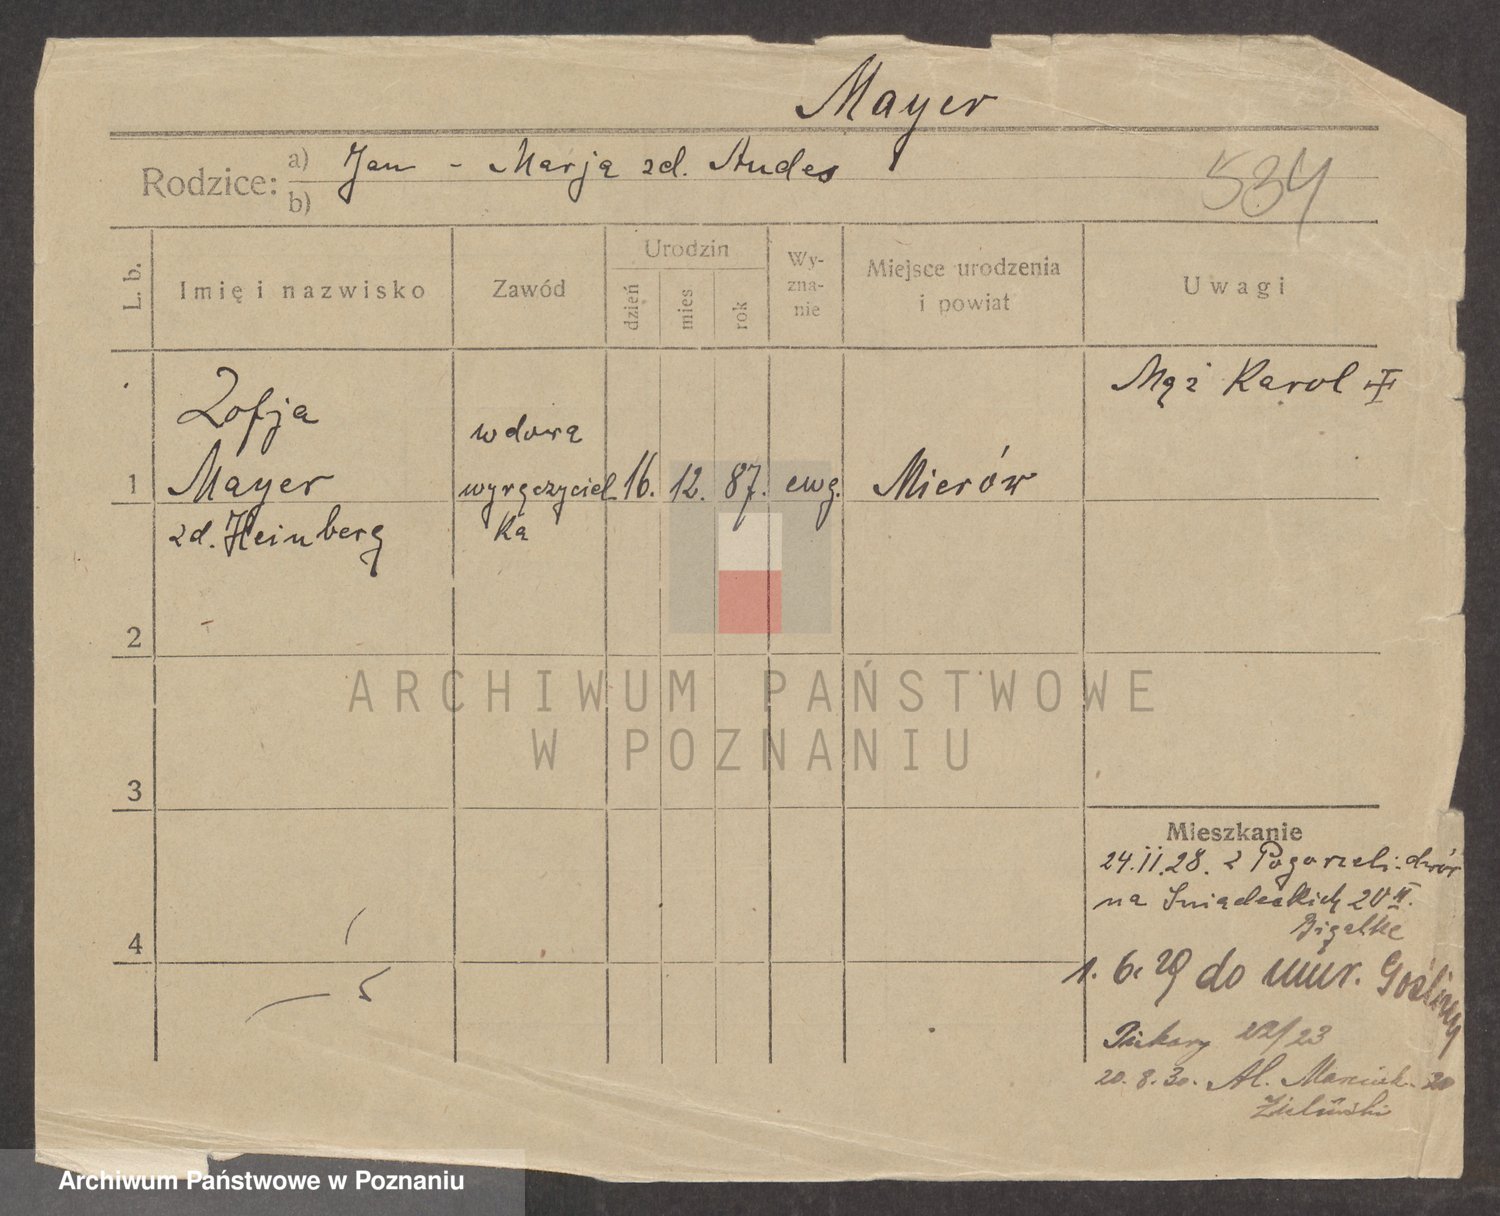 Mayer
Rodzice: a) Jan - Marja zd. Andes
b)
534
L. b.
Imię i nazwisko
Zawód
Urodzin
dzień
mies
rok
Wy-
zna-
nie
Miejsce urodzenia
i powiat
Uwagi
Mąż Karol
Zofja
wdowa
1 Mayer wyręczyciel 16. 12. 87. ewg. Mierów
zd. Heinberg ka
2
3
4
ARCHIWUM PAŃSTWOWE
W POZNANIU
Mieszkanie
24.II.28. z Pogorzeli-dwór
na Śniadeckich 20 II.
Bigalke
1. 6. 29 do mur. Gośliny
Piekary 22/23
20. 8. 30. Al. Marcink. 20
Zieliński
Archiwum Państwowe w Poznaniu